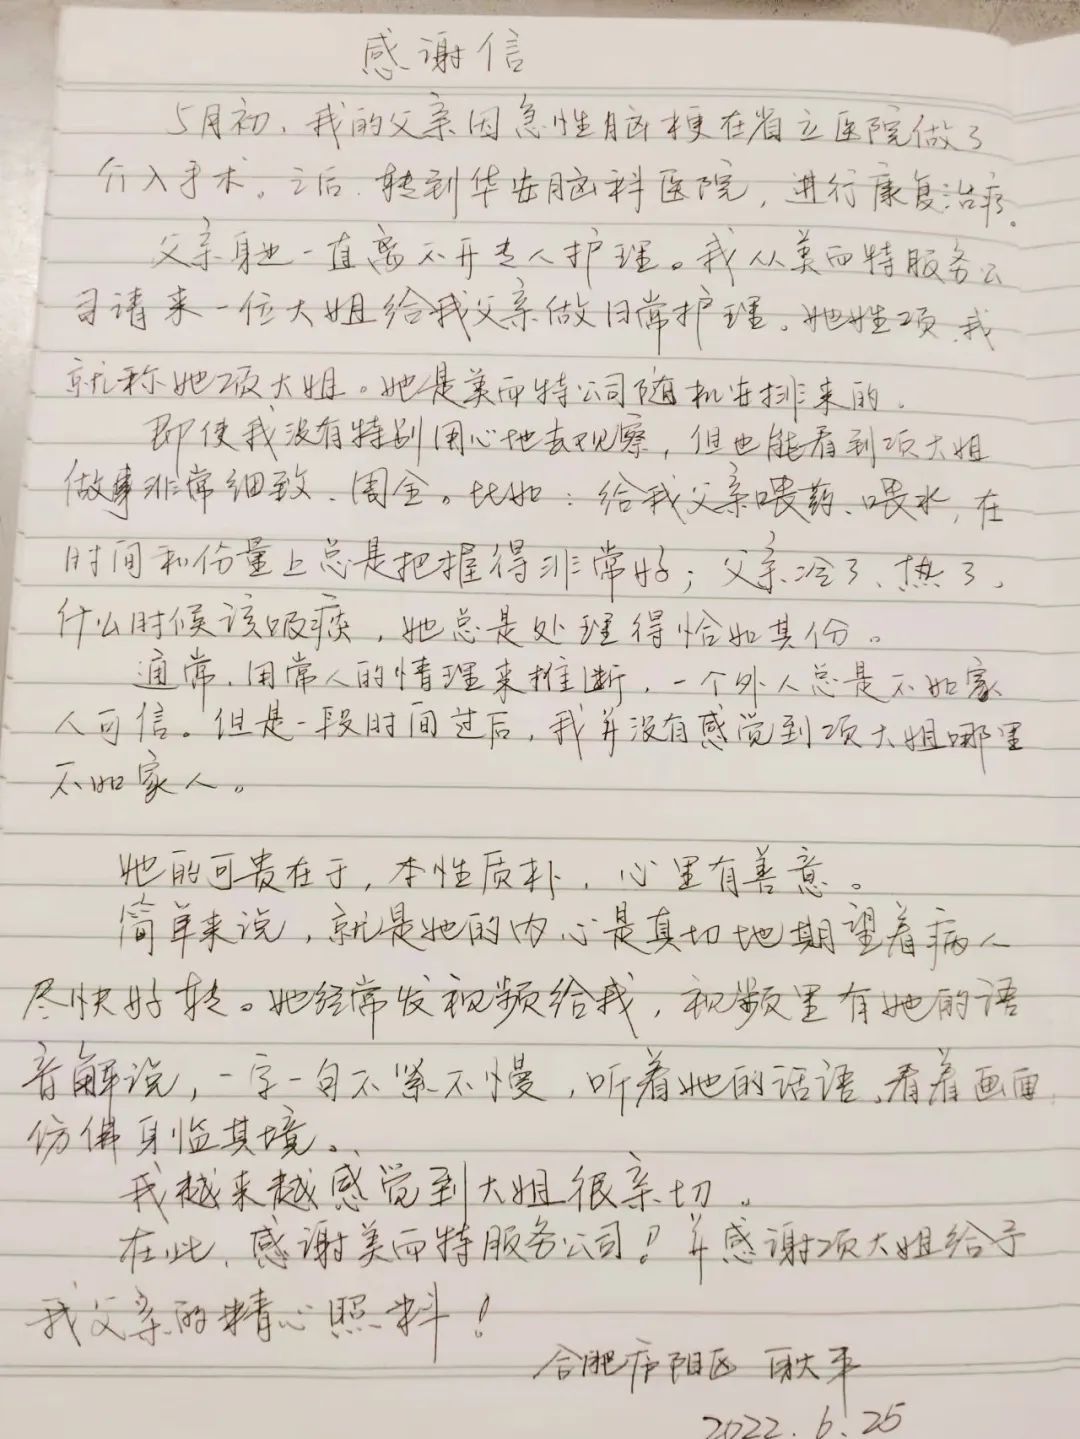 感谢信
5月初，我的父亲因急性脑梗在省立医院做了
介入手术。之后，转到华安脑科医院，进行康复治疗。
父亲身边一直离不开专人护理。我从美而特服务公
司请来一位大姐给我父亲做日常护理。她姓项，我
就称她项大姐。她是美而特公司随机安排来的。
即使我没有特别用心地去观察，但也能看到项大姐
做事非常细致、周全。比如：给我父亲喂药、喂水，在
时间和份量上总是把握得非常好；父亲冷了、热了、
什么时候该吸痰，她总是处理得恰如其份。
通常，用常人的情理来推断，一个外人总是不如家
人可信。但是一段时间过后，我并没有感觉到项大姐哪里
不如家人。
她的可贵在于，本性质朴，心里有善意。
简单来说，就是她的内心是真切地期望着病人
尽快好转。她经常发视频给我，视频里有她的语
音解说，一字一句不紧不慢，听着她的话语，看着画面，
仿佛身临其境。
我越来越感觉到大姐很亲切。
在此，感谢美而特服务公司！并感谢项大姐给予
我父亲的精心照料！
合肥庐阳区 耿平
2022.6.25